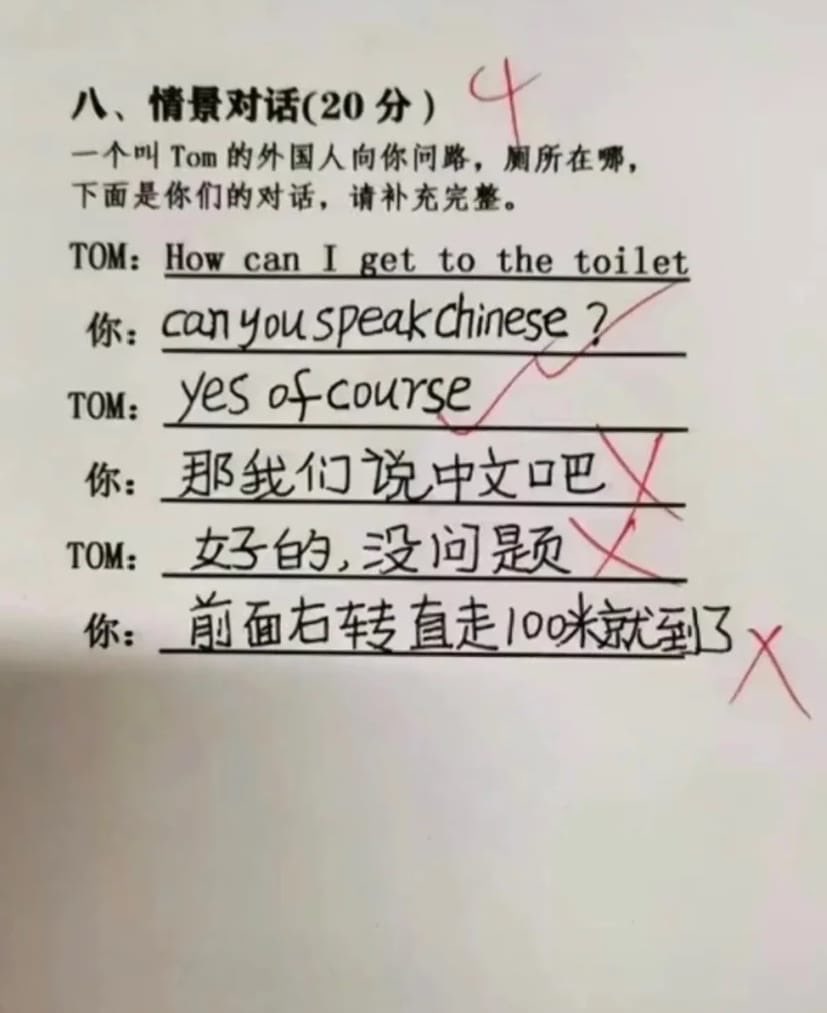 八、情景对话(20 分) 4
一个叫 Tom 的外国人向你问路，厕所在哪，
下面是你们的对话，请补充完整。
TOM: How can I get to the toilet
你: can you speak chinese ?
TOM: yes of course
你: 那我们说中文吧
TOM: 好的,没问题
你: 前面右转直走100米就到了